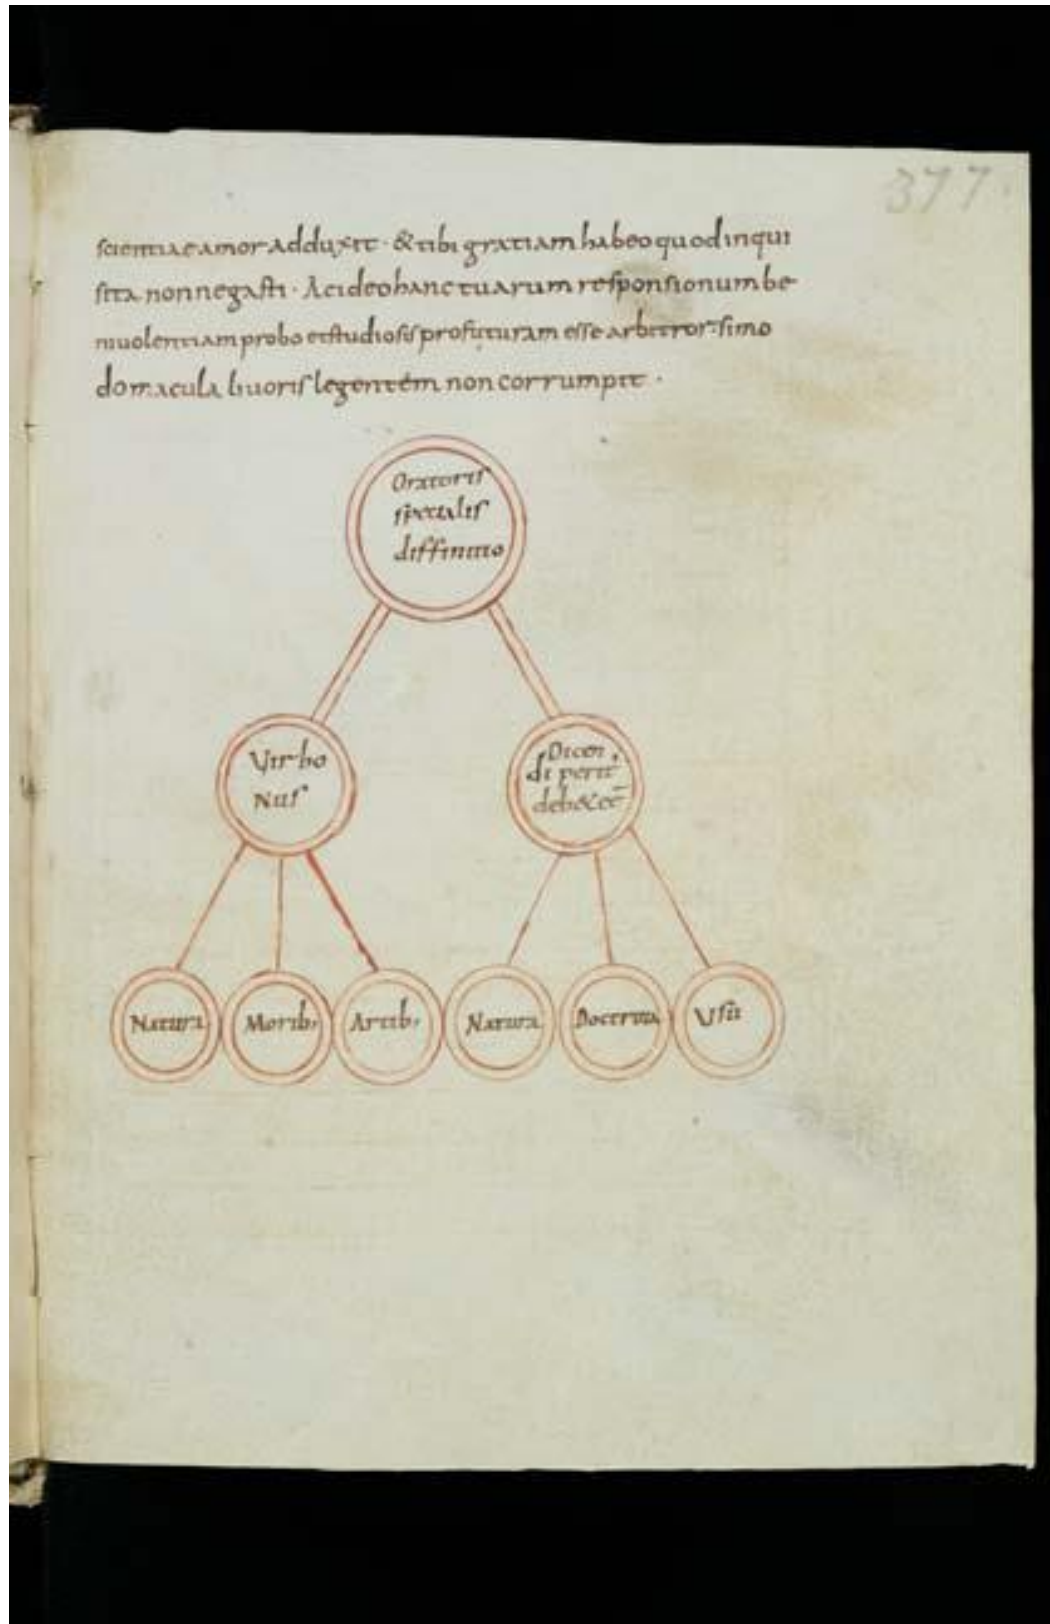 377
scientiae amor adduxit · & tibi gratiam habeo quod inqui
sita non negasti · Ac ideo hanc tuarum responsionum be
nivolentiam probo et studiosis profuturam esse arbitror · si mo
do macula livoris legentem non corrumpit ·
Oratoris
specialis
diffinitio
Vir bo
nus
Dicen
di perit
deb& eē
Natura
Morib;
Artib;
Natura
Doctrina
Usu